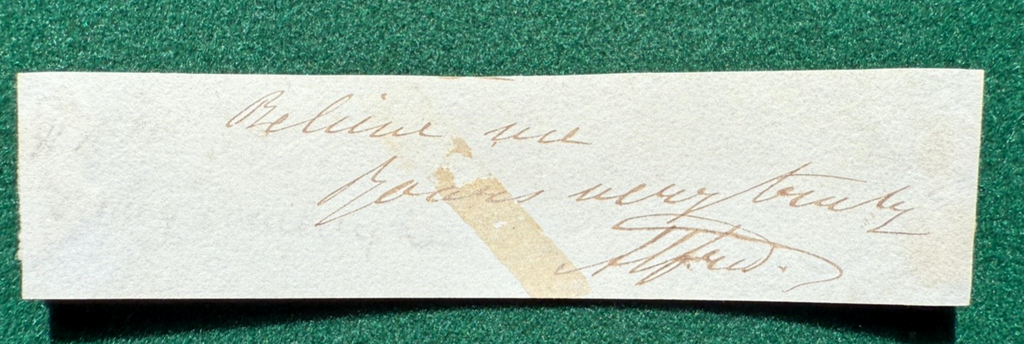 Believe me
Yours very truly
Alfred.